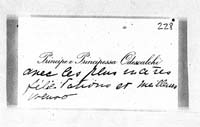 228
Principe e Principessa Odescalchi
avec les plus vives
félicitations et meilleurs
voeux